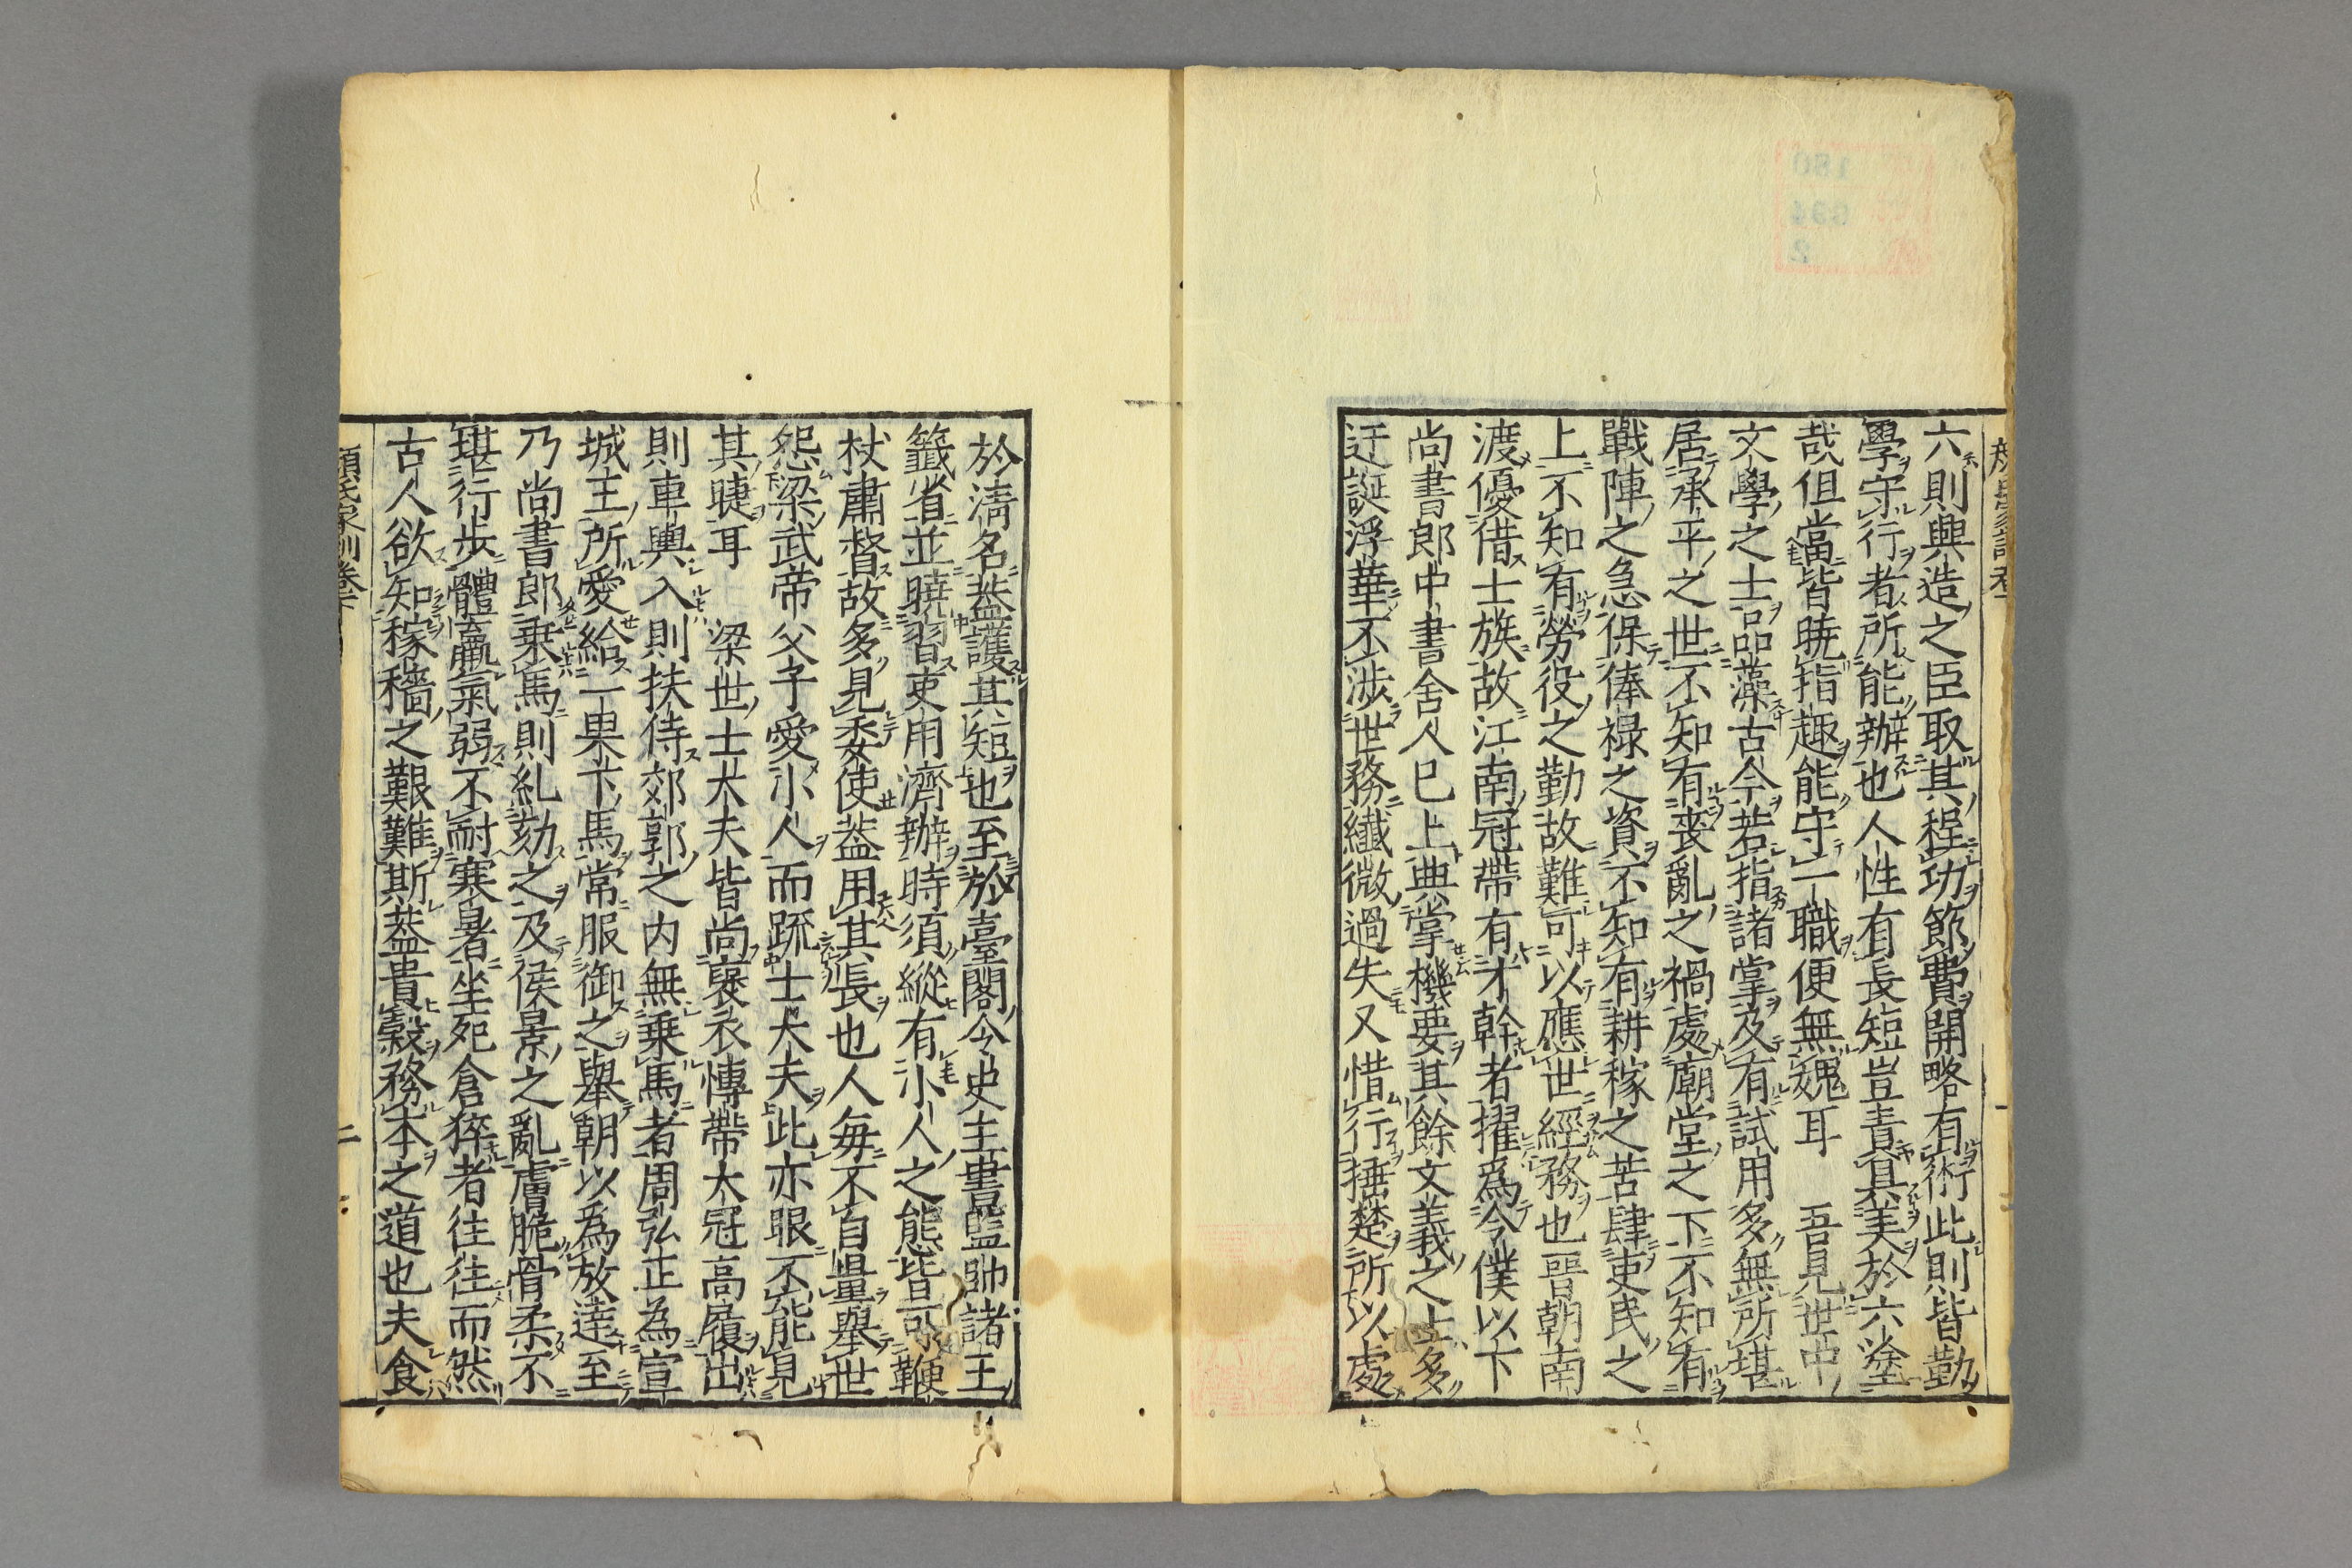 六則興造之臣取其程功節費開略有術此則皆勤
學守行者所能辦也人性有長短豈責具美於六塗
哉但當皆曉指趣能守一職便無媿耳　吾見世中
文學之士品藻古今若指諸掌及有試用多無所堪
居承平之世不知有喪亂之禍處廟堂之下不知有
戰陣之急保俸祿之資不知有耕稼之苦肆吏民之
上不知有勞役之勤故難可以應世經務也晉朝南
渡優借士族故江南冠帶有才幹者擢爲令僕以下
尚書郎中書舍人已上典掌機要其餘文義之士多
迂誕浮華不涉世務纖微過失又惜行捶楚所以處
於清名葢護其短也至於臺閣令史主書監帥諸王
籤省並曉習吏用濟辦時須縱有小人之態皆可鞭
杖肅督故多見委使葢用其長也人每不自量舉世
怨梁武帝父子愛小人而疏士大夫此亦眼不能見
其睫耳　梁世士大夫皆尚襃衣博帶大冠高履出
則車輿入則扶侍郊郭之内無乗馬者周弘正為宣
城王所愛給一果下馬常服御之舉朝以爲放達至
乃尚書郎乗馬則糺劾之及侯景之亂膚脆骨柔不
堪行步體羸氣弱不耐寒暑坐死倉猝者往往而然
古人欲知稼穡之艱難斯葢貴穀務本之道也夫食
顏氏家訓卷下
二